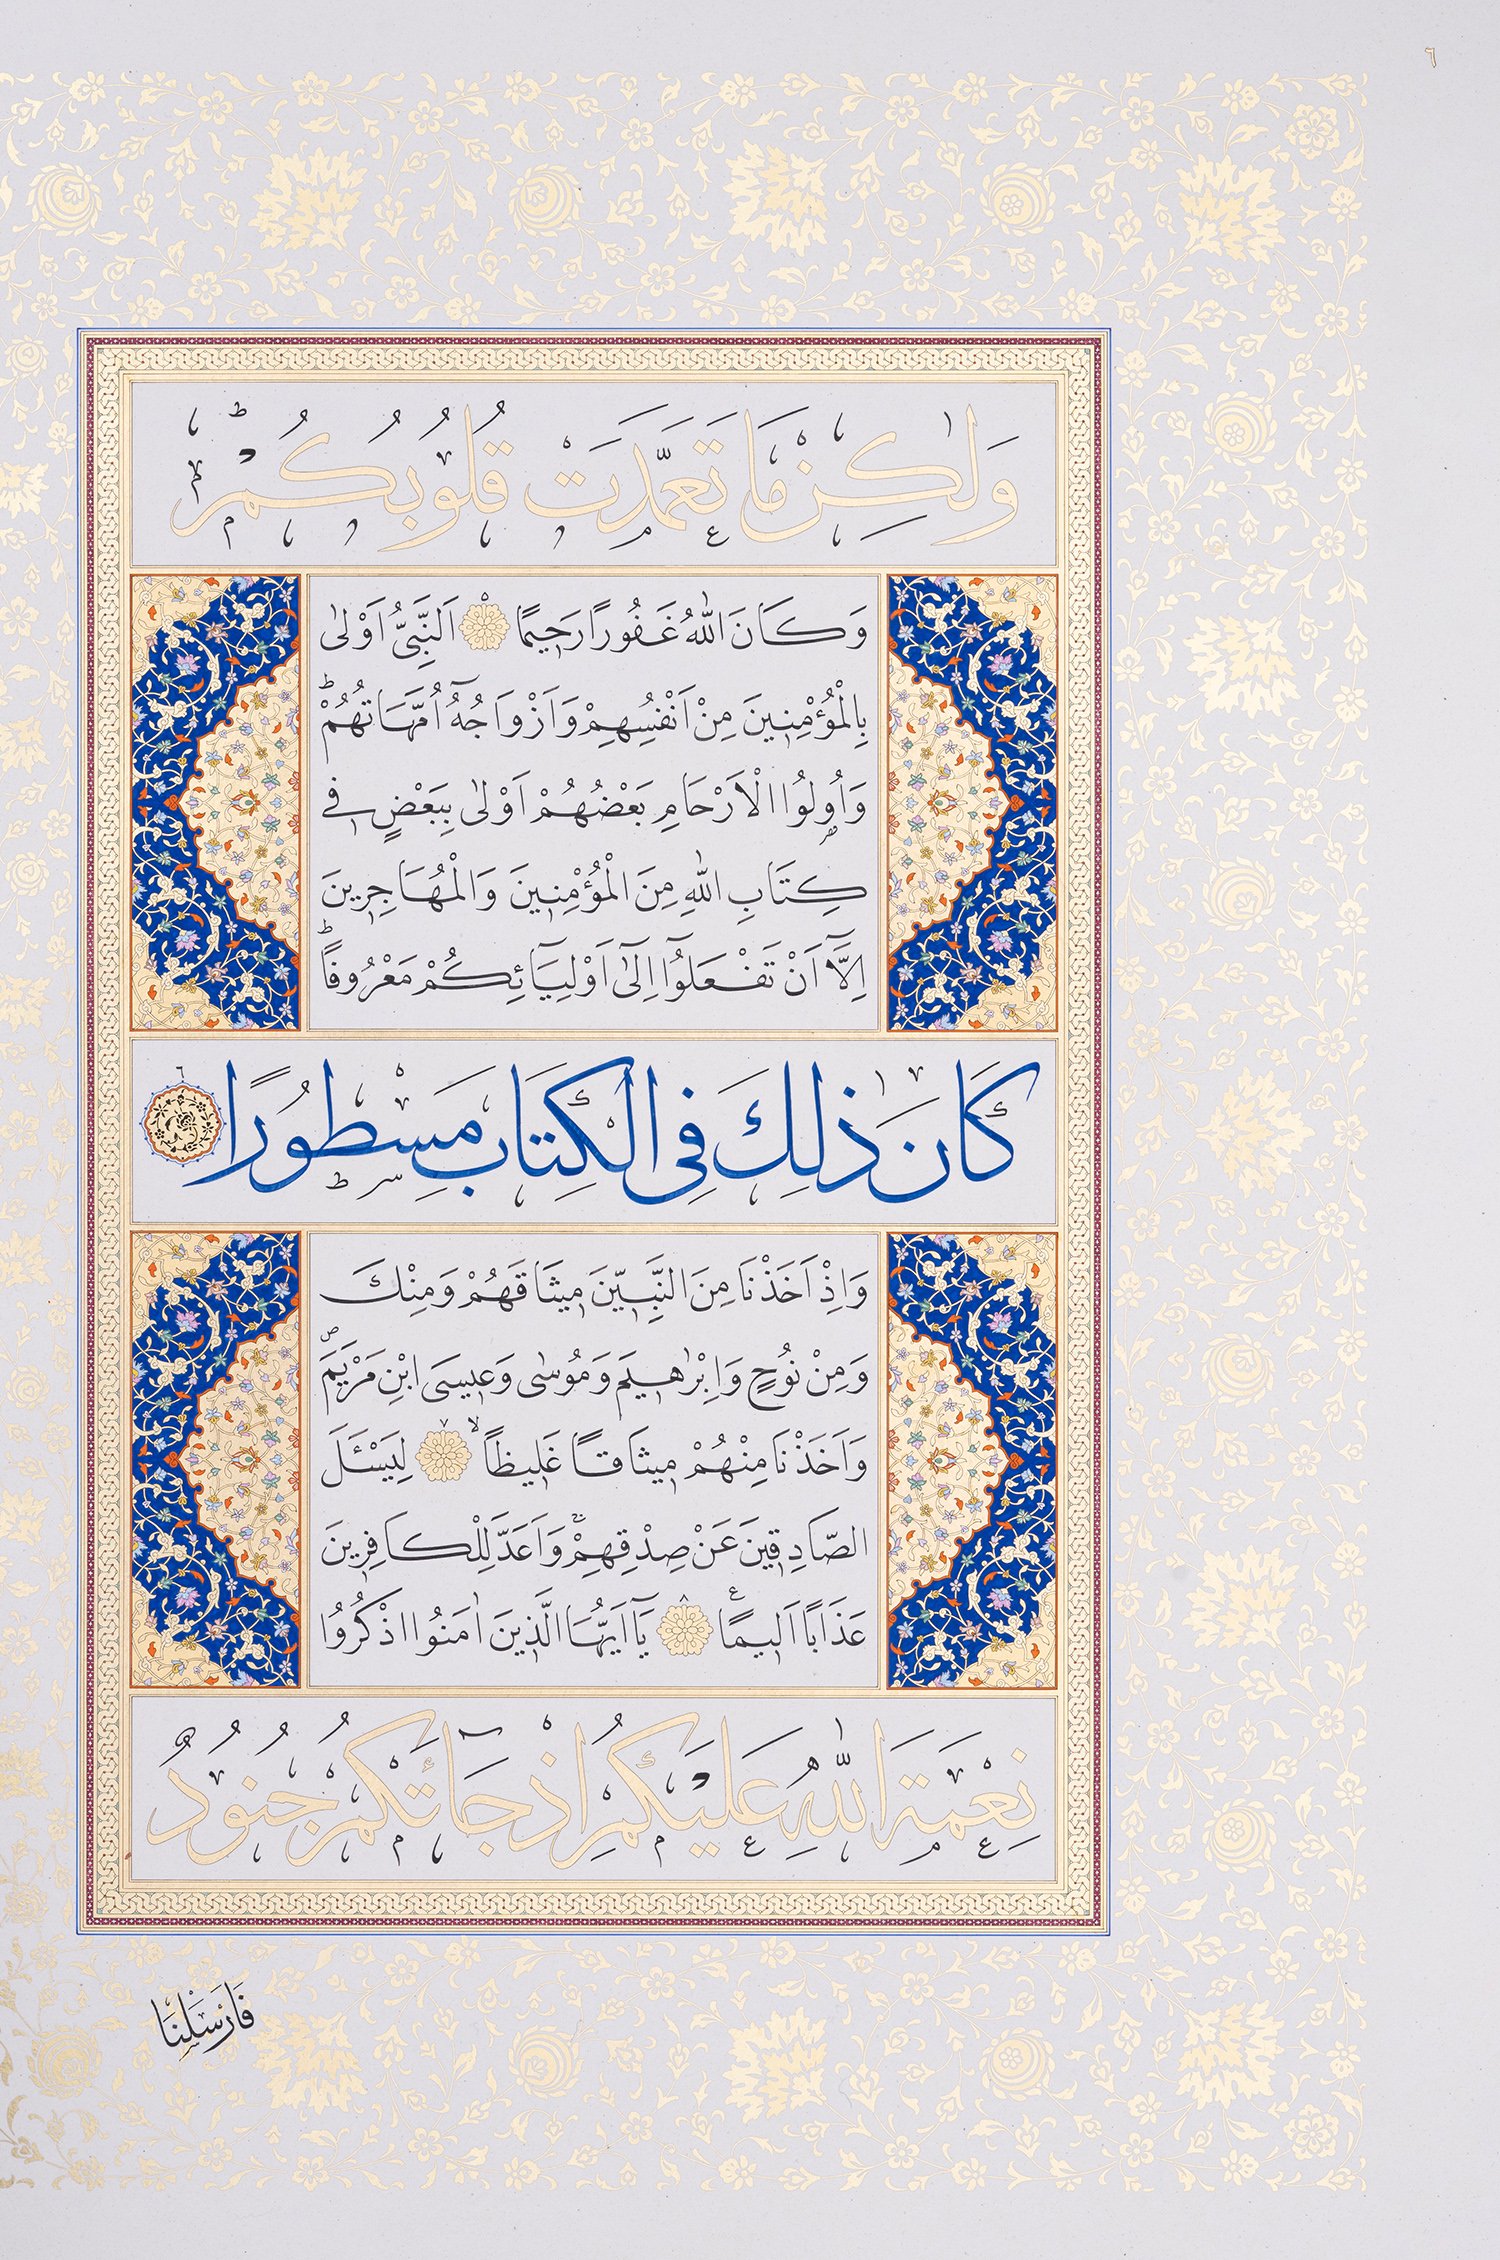 ٦
وَلٰكِنْ مَا تَعَمَّدَتْ قُلُوبُكُمْۜ
وَكَانَ اللّٰهُ غَفُورًا رَحِيمًا ۝٥ اَلنَّبِيُّ اَوْلٰى
بِالْمُؤْمِنِينَ مِنْ اَنْفُسِهِمْ وَاَزْوَاجُهُٓ اُمَّهَاتُهُمْۜ
وَاُولُوا الْاَرْحَامِ بَعْضُهُمْ اَوْلٰى بِبَعْضٍ فِي
كِتَابِ اللّٰهِ مِنَ الْمُؤْمِنِينَ وَالْمُهَاجِرِينَ
اِلَّٓا اَنْ تَفْعَلُٓوا اِلٰٓى اَوْلِيَٓائِكُمْ مَعْرُوفًاۜ
كَانَ ذٰلِكَ فِي الْكِتَابِ مَسْطُورًا ۝٦
وَاِذْ اَخَذْنَا مِنَ النَّبِيّٖنَ مِيثَاقَهُمْ وَمِنْكَ
وَمِنْ نُوحٍ وَاِبْرٰهِيمَ وَمُوسٰى وَعِيسَى ابْنِ مَرْيَمَۖ
وَاَخَذْنَا مِنْهُمْ مِيثَاقًا غَلِيظًاۙ ۝٧ لِيَسْـَٔلَ
الصَّادِقِينَ عَنْ صِدْقِهِمْۚ وَاَعَدَّ لِلْكَافِرِينَ
عَذَابًا اَلِيمًاࣖ ۝٨ يَٓا اَيُّهَا الَّذِينَ اٰمَنُوا اذْكُرُوا
نِعْمَةَ اللّٰهِ عَلَيْكُمْ اِذْ جَٓاءَتْكُمْ جُنُودٌ
فَاَرْسَلْنَا